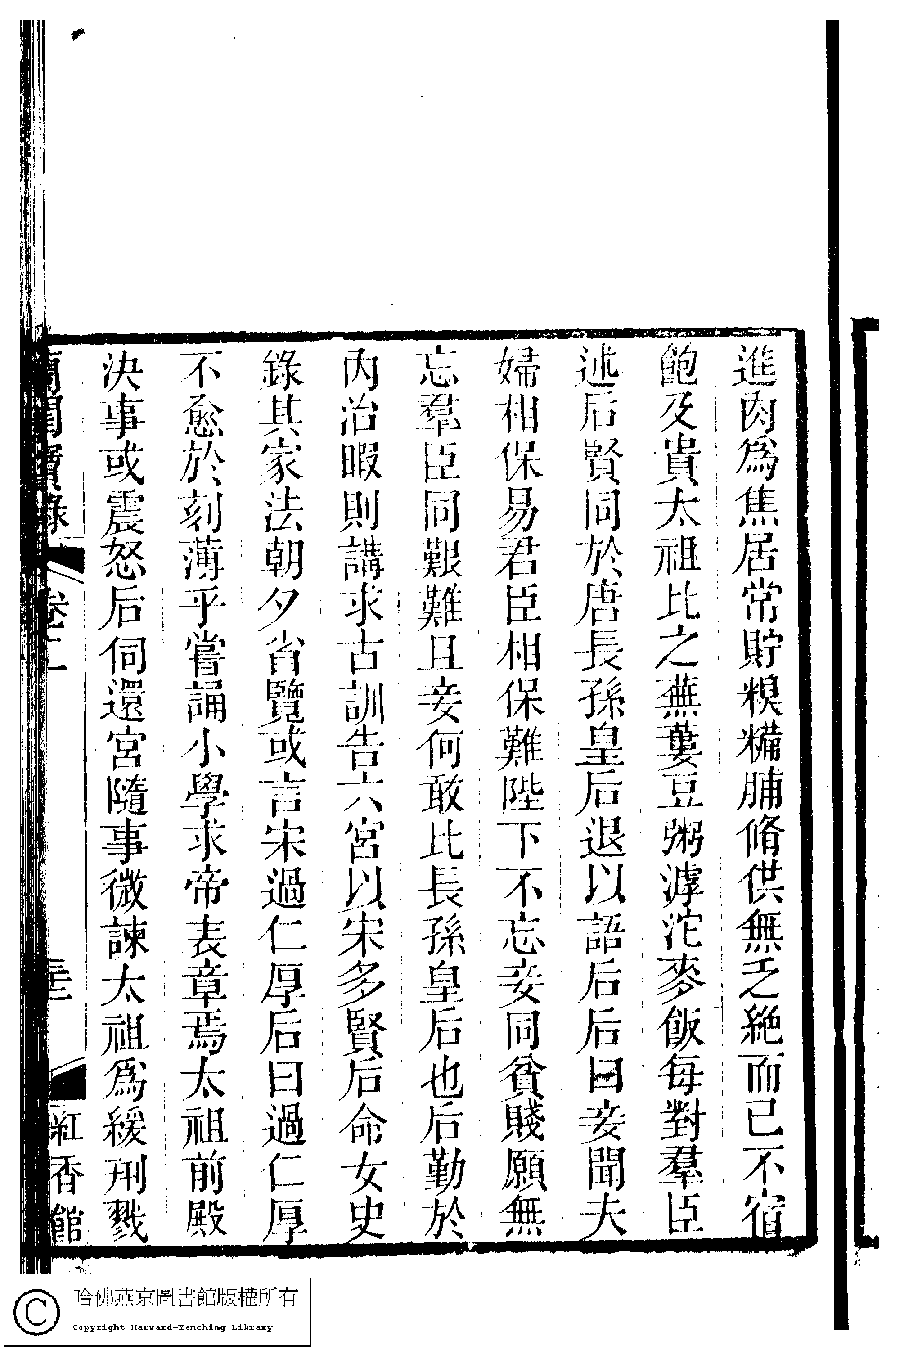 進肉為焦居常貯糗糒脯脩供無乏絶而已不宿
飽及貴太祖比之蕪蔞豆粥滹沱麥飯每對羣臣
述后賢同於唐長孫皇后退以語后后曰妾聞夫
婦相保易君臣相保難陛下不忘妾同貧賤願無
忘羣臣同艱難且妾何敢比長孫皇后也后勤於
内治暇則講求古訓告六宮以宋多賢后命女史
錄其家法朝夕省覽或言宋過仁厚后曰過仁厚
不愈於刻薄乎嘗誦小學求帝表章焉太祖前殿
決事或震怒后伺還宮隨事微諫太祖為緩刑戮
蘭閨寶錄 卷二 三 紅香館
哈佛燕京圖書館版權所有
Copyright Harvard-Yenching Library